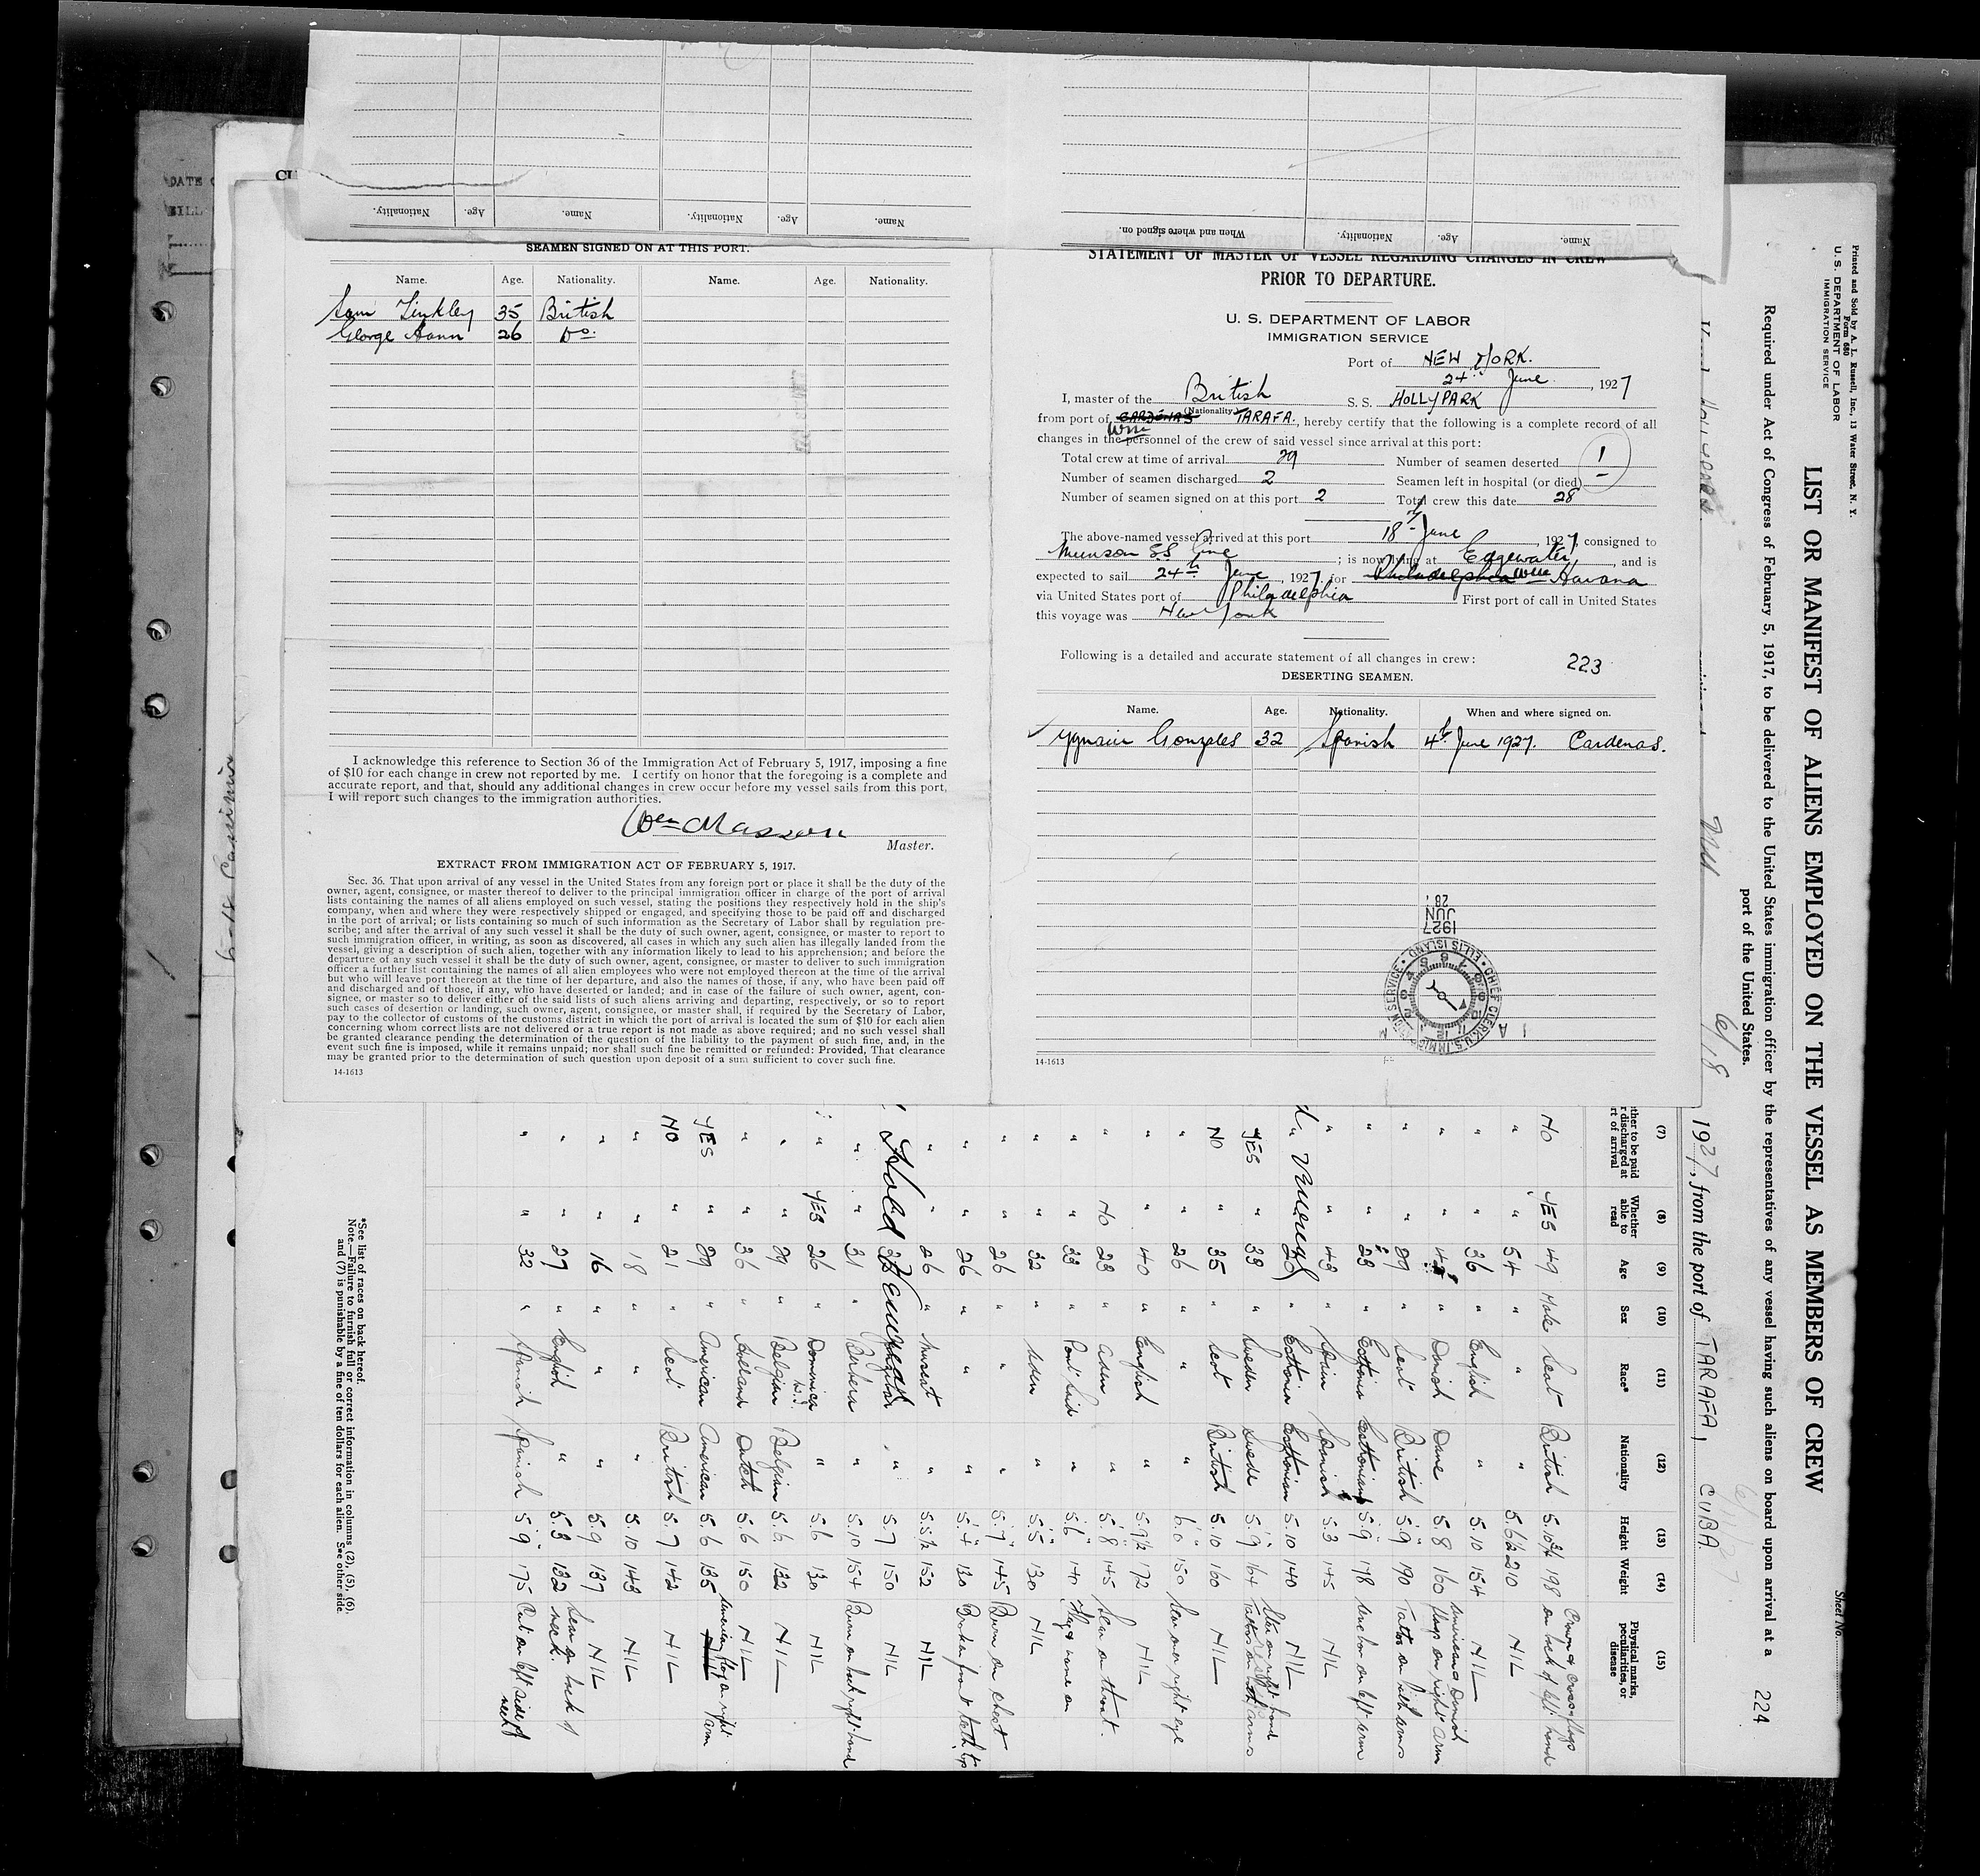 Nationality.
Age.
Name.
Nationality.
Age.
Name.
When and where signed on.
Nationality.
Age.
Name.
SEAMEN SIGNED ON AT THIS PORT.
Name. Age. Nationality. Name. Age. Nationality.
Sam Tinkley 35 British
George Hann 26 Do.
I acknowledge this reference to Section 36 of the Immigration Act of February 5, 1917, imposing a fine
of $10 for each change in crew not reported by me. I certify on honor that the foregoing is a complete and
accurate report, and that, should any additional changes in crew occur before my vessel sails from this port,
I will report such changes to the immigration authorities.
Wm Masson
Master.
EXTRACT FROM IMMIGRATION ACT OF FEBRUARY 5, 1917.
Sec. 36. That upon arrival of any vessel in the United States from any foreign port or place it shall be the duty of the
owner, agent, consignee, or master thereof to deliver to the principal immigration officer in charge of the port of arrival
lists containing the names of all aliens employed on such vessel, stating the positions they respectively hold in the ship's
company, when and where they were respectively shipped or engaged, and specifying those to be paid off and discharged
in the port of arrival; or lists containing so much of such information as the Secretary of Labor shall by regulation pre-
scribe; and after the arrival of any such vessel it shall be the duty of such owner, agent, consignee, or master to report to
such immigration officer, in writing, as soon as discovered, all cases in which any such alien has illegally landed from the
vessel, giving a description of such alien, together with any information likely to lead to his apprehension; and before the
departure of any such vessel it shall be the duty of such owner, agent, consignee, or master to deliver to such immigration
officer a further list containing the names of all alien employees who were not employed thereon at the time of the arrival
but who will leave port thereon at the time of her departure, and also the names of those, if any, who have been paid off
and discharged and of those, if any, who have deserted or landed; and in case of the failure of such owner, agent, con-
signee, or master so to deliver either of the said lists of such aliens arriving and departing, respectively, or so to report
such cases of desertion or landing, such owner, agent, consignee, or master shall, if required by the Secretary of Labor,
pay to the collector of customs of the customs district in which the port of arrival is located the sum of $10 for each alien
concerning whom correct lists are not delivered or a true report is not made as above required; and no such vessel shall
be granted clearance pending the determination of the question of the liability to the payment of such fine, and, in the
event such fine is imposed, while it remains unpaid; nor shall such fine be remitted or refunded: Provided, That clearance
may be granted prior to the determination of such question upon deposit of a sum sufficient to cover such fine.
14-1613
STATEMENT OF MASTER OF VESSEL REGARDING CHANGES IN CREW
PRIOR TO DEPARTURE.
U. S. DEPARTMENT OF LABOR
IMMIGRATION SERVICE
Port of NEW YORK.
24 June, 1927
I, master of the British S. S. HOLLYPARK
(Nationality)
from port of CARDENAS TARAFA., hereby certify that the following is a complete record of all
Wm
changes in the personnel of the crew of said vessel since arrival at this port:
Total crew at time of arrival 29 Number of seamen deserted 1
Number of seamen discharged 2 Seamen left in hospital (or died) –
Number of seamen signed on at this port 2 Total crew this date 28
The above-named vessel arrived at this port 18th June, 1927, consigned to
Munson SS Line; is now lying at Edgewater, and is
expected to sail 24th June, 1927, for Philadelphia Wm Havana
via United States port of Philadelphia First port of call in United States
this voyage was New York
Following is a detailed and accurate statement of all changes in crew: 223
DESERTING SEAMEN.
Name. Age. Nationality. When and where signed on.
Gonzales 32 Spanish 4th June 1927. Cardenas.
1927
JUN
28
CHIEF CLERK U.S. IMMIGRATION SERVICE • ELLIS ISLAND •
14-1613
Printed and Sold by A. L. Russell, Inc., 13 Water Street, N. Y.
Form 680
U. S. DEPARTMENT OF LABOR
IMMIGRATION SERVICE
Sheet No.
LIST OR MANIFEST OF ALIENS EMPLOYED ON THE VESSEL AS MEMBERS OF CREW
Required under Act of Congress of February 5, 1917, to be delivered to the United States immigration officer by the representatives of any vessel having such aliens on board upon arrival at a
port of the United States.
224
6/18 1927, from the port of TARAFA, CUBA.
(7) (8) (9) (10) (11) (12) (13) (14) (15)
Whether able to read Age Sex Race* Nationality Height Weight Physical marks, peculiarities, or disease
NO YES 49 Male Scot British 5.10¾ 198 on back of left hand
" " 54 " " " 5.6½ 210 NIL
" " 36 " English " 5.10 154 NIL
" " " Danish Dane 5.8 160 American & Danish flags on right arm
" " 29 " Scot British 5.9 190 Tattoo on both arms
" " 23 " Esthonia Esthonian 5.9 178 on left arm
" " 43 " Spain Spanish 5.3 145 NIL
" " 20 " Esthonia Esthonian 5.10 140 NIL
YES " 33 " Sweden Swede 5.9 164 Star on right hand Tattoo on arms
NO " 35 " Scot British 5.10 160 NIL
" " 26 " " " 6.0 150 Scar over right eye
" " 40 " English " 5.7½ 172 NIL
" NO 23 " Aden " 5.8 145 Scar on throat.
" " 33 " Port Said " 5.6 140 Flag & name on
" " 32 " Aden " 5.5 130 NIL
" " 26 " " " 5.7 145 Burn on chest
" " 26 " " " 5.4 130 Broken front teeth top
" " 26 " Muscat " 5.5½ 152 NIL
" 5.7 150 NIL
" " 31 " Berbera " 5.10 154 Burn on back right hand
" YES 26 " Dominica W.I. " 5.6 130 NIL
" " 29 " Belgian Belgian 5.6 132 NIL
" " 36 " Holland Dutch 5.6 150 NIL
YES " 29 " American American 5.6 135 American flag on right arm
NO " 21 " Scot British 5.7 142 NIL
" " 18 " " " 5.10 143 NIL
" " 16 " " " 5.9 137 NIL
" " 27 " English " 5.3 132 Scar on back of neck.
" " 32 " Spanish Spanish 5.9 175 Cut on left side of neck
*See list of races on back hereof.
Note.—Failure to furnish full or correct information in columns (2), (5), (6),
and (7) is punishable by a fine of ten dollars for each alien. See other side.